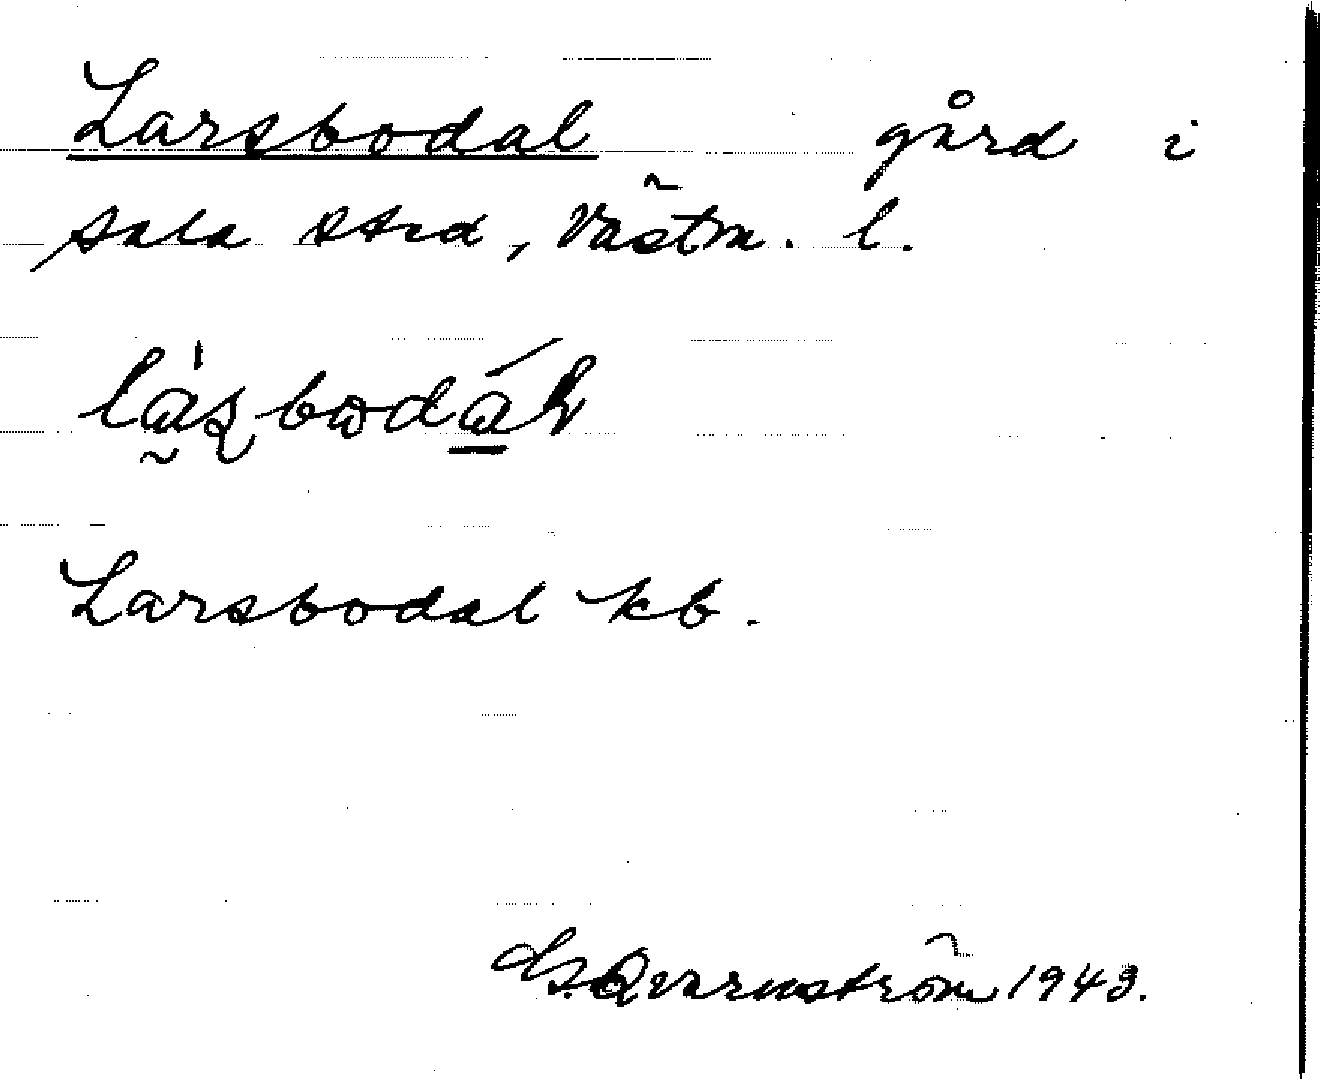 Larsbodal gård i
Sala stad, Västm. l.
Larsbodal kb.
Qvarnström 1943.